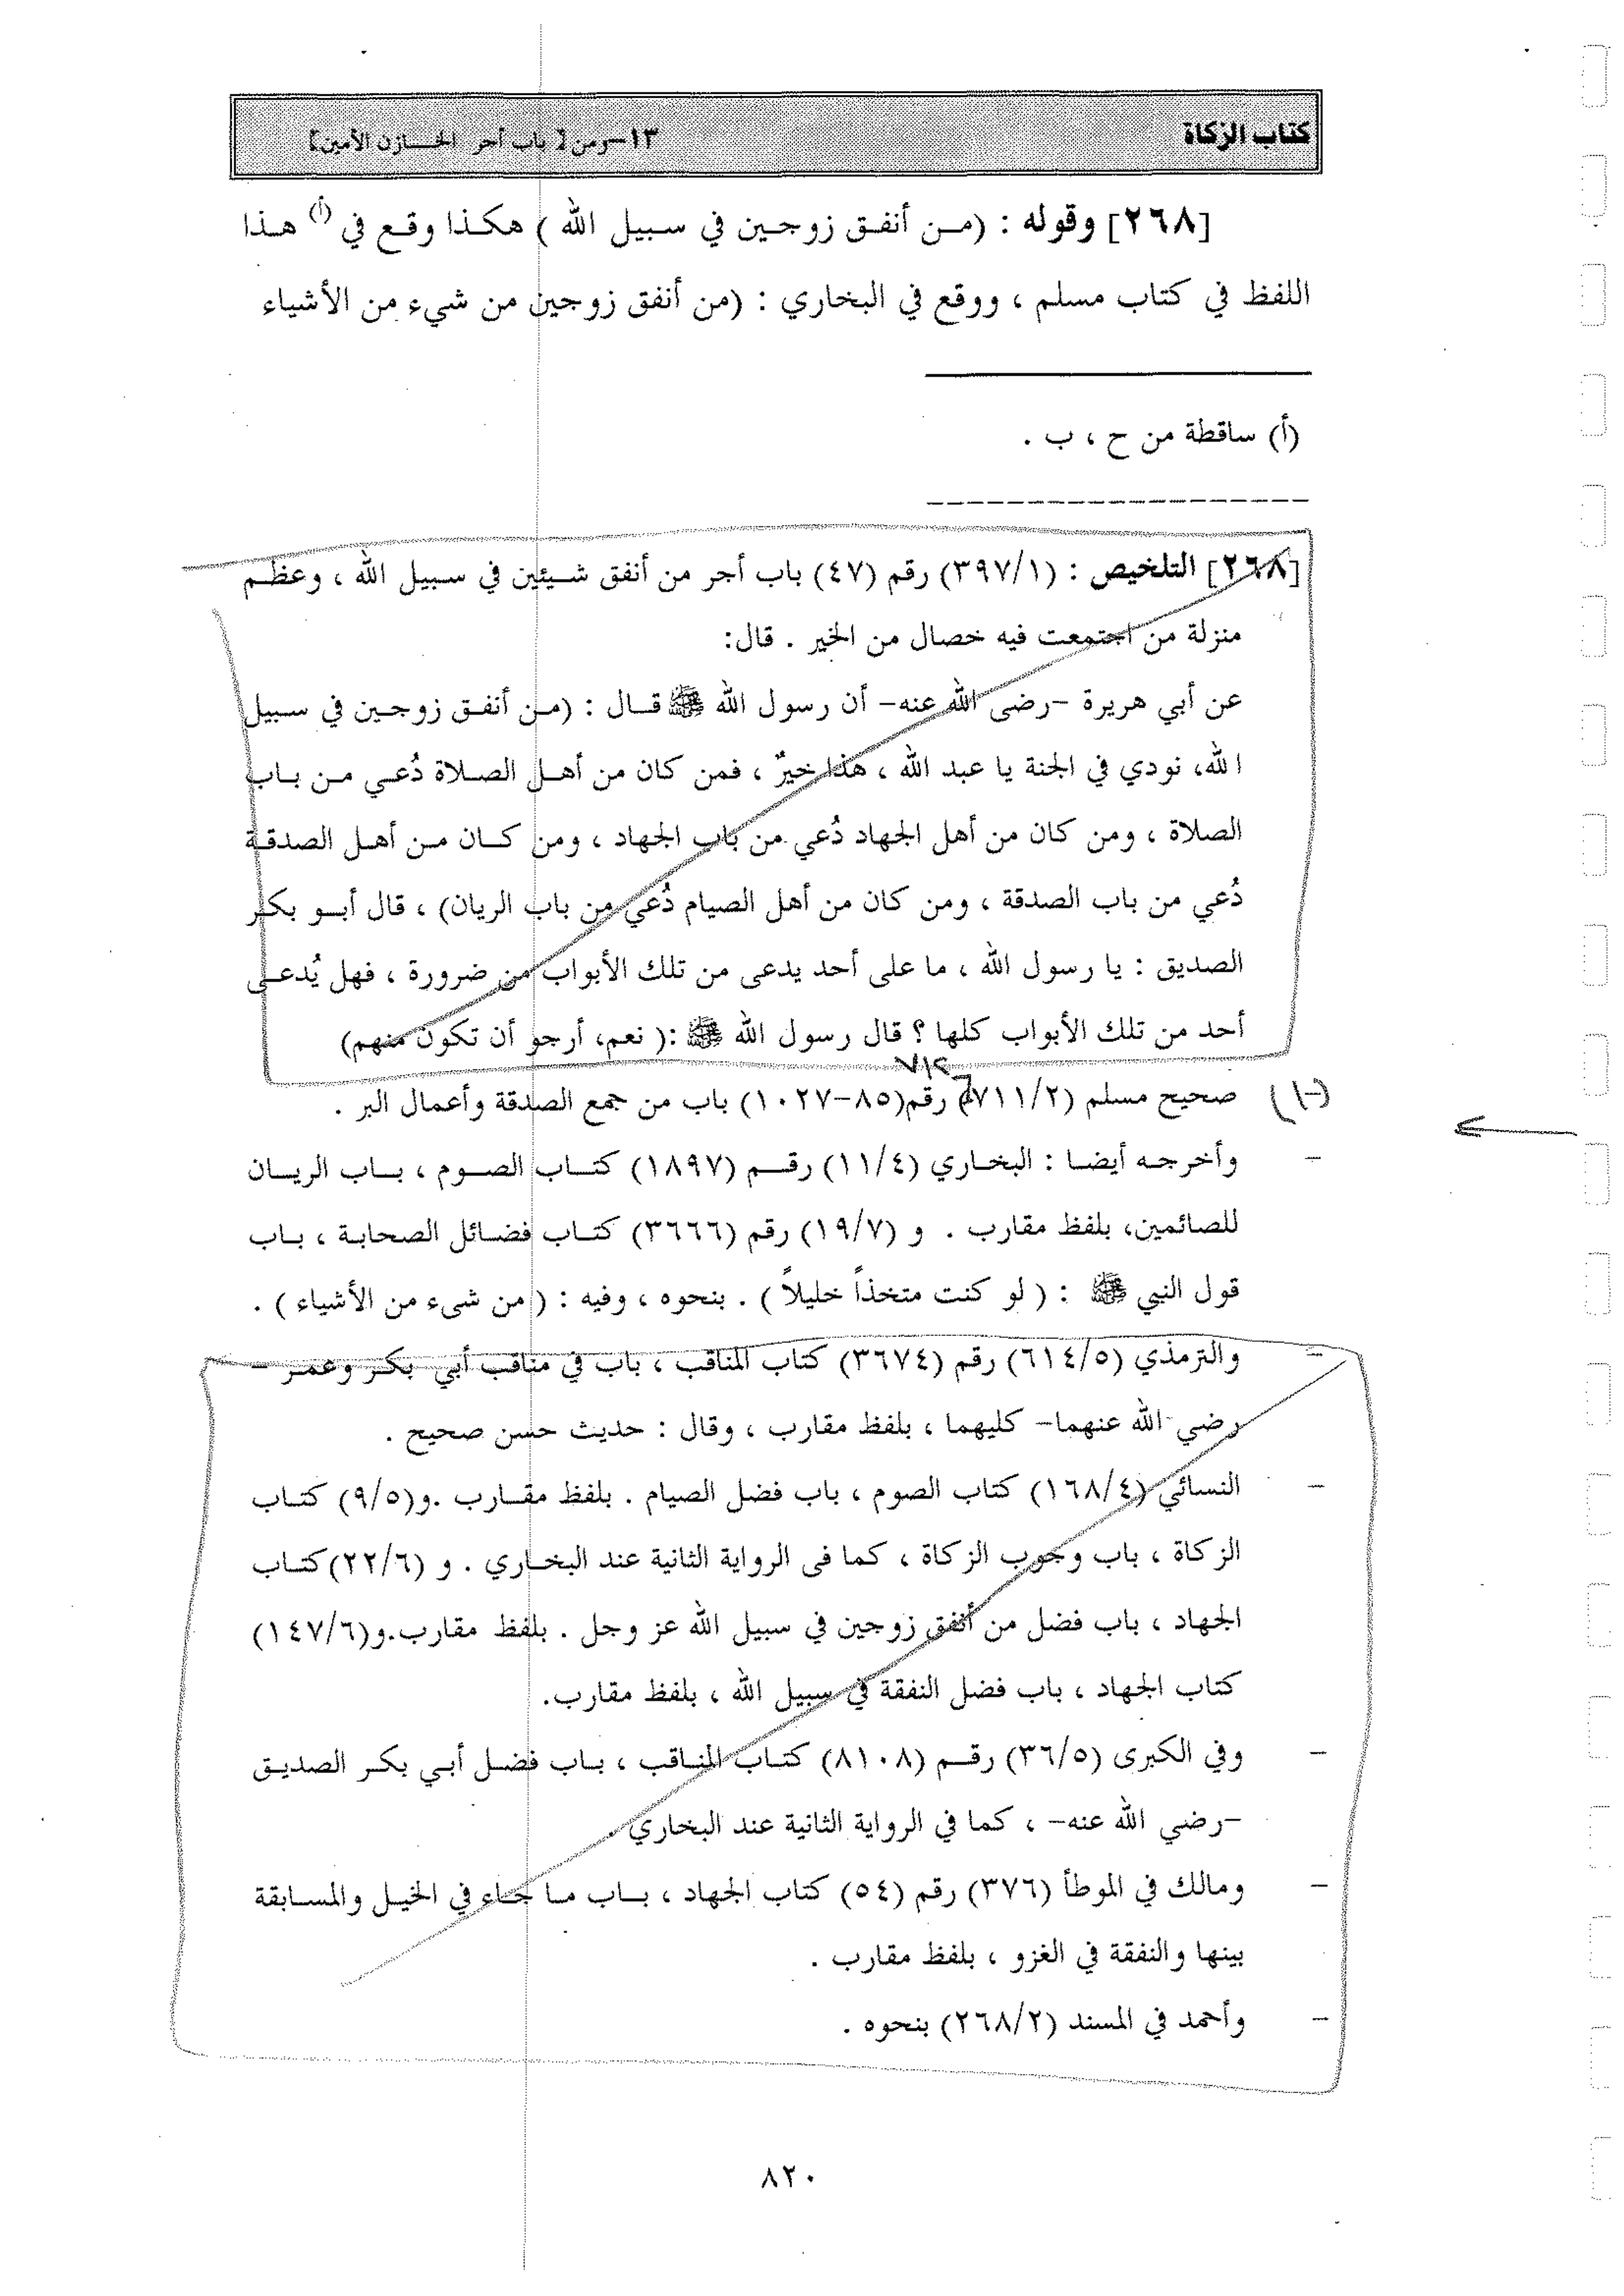 كتاب الزكاة ١٣-ومن [ باب أجر الخازن الأمين]
[٢٦٨] وقوله : (من أنفق زوجين في سبيل الله ) هكذا وقع في (أ) هذا
اللفظ في كتاب مسلم ، ووقع في البخاري : (من أنفق زوجين من شيء من الأشياء
(أ) ساقطة من ح ، ب .
[٢٦٨] التلخيص : (٣٩٧/١) رقم (٤٧) باب أجر من أنفق شيئين في سبيل الله ، وعظم
منزلة من اجتمعت فيه خصال من الخير . قال:
عن أبي هريرة -رضى الله عنه- أن رسول الله ﷺ قال : (من أنفق زوجين في سبيل
الله، نودي في الجنة يا عبد الله ، هذا خيرٌ ، فمن كان من أهل الصلاة دُعي من باب
الصلاة ، ومن كان من أهل الجهاد دُعي من باب الجهاد ، ومن كان من أهل الصدقة
دُعي من باب الصدقة ، ومن كان من أهل الصيام دُعي من باب الريان) ، قال أبو بكر
الصديق : يا رسول الله ، ما على أحد يدعى من تلك الأبواب من ضرورة ، فهل يُدعى
أحد من تلك الأبواب كلها ؟ قال رسول الله ﷺ :( نعم، أرجو أن تكون منهم)
٧١٢
(١-) صحيح مسلم (٧١١/٢) رقم(٨٥-١٠٢٧) باب من جمع الصدقة وأعمال البر .
- وأخرجه أيضا : البخاري (١١/٤) رقم (١٨٩٧) كتاب الصوم ، باب الريان
للصائمين، بلفظ مقارب . و (١٩/٧) رقم (٣٦٦٦) كتاب فضائل الصحابة ، باب
قول النبي ﷺ : ( لو كنت متخذاً خليلاً ) . بنحوه ، وفيه : ( من شىء من الأشياء ) .
- والترمذي (٦١٤/٥) رقم (٣٦٧٤) كتاب المناقب ، باب في مناقب أبي بكر وعمر -
رضي الله عنهما- كليهما ، بلفظ مقارب ، وقال : حديث حسن صحيح .
- النسائي (١٦٨/٤) كتاب الصوم ، باب فضل الصيام . بلفظ مقارب .و(٩/٥) كتاب
الزكاة ، باب وجوب الزكاة ، كما فى الرواية الثانية عند البخاري . و (٢٢/٦)كتاب
الجهاد ، باب فضل من أنفق زوجين في سبيل الله عز وجل . بلفظ مقارب.و(١٤٧/٦)
كتاب الجهاد ، باب فضل النفقة في سبيل الله ، بلفظ مقارب.
- وفي الكبرى (٣٦/٥) رقم (٨١٠٨) كتاب المناقب ، باب فضل أبي بكر الصديق
-رضي الله عنه- ، كما في الرواية الثانية عند البخاري .
- ومالك في الموطأ (٣٧٦) رقم (٥٤) كتاب الجهاد ، باب ما جاء في الخيل والمسابقة
بينها والنفقة في الغزو ، بلفظ مقارب .
- وأحمد في المسند (٢٦٨/٢) بنحوه .
٨٢٠